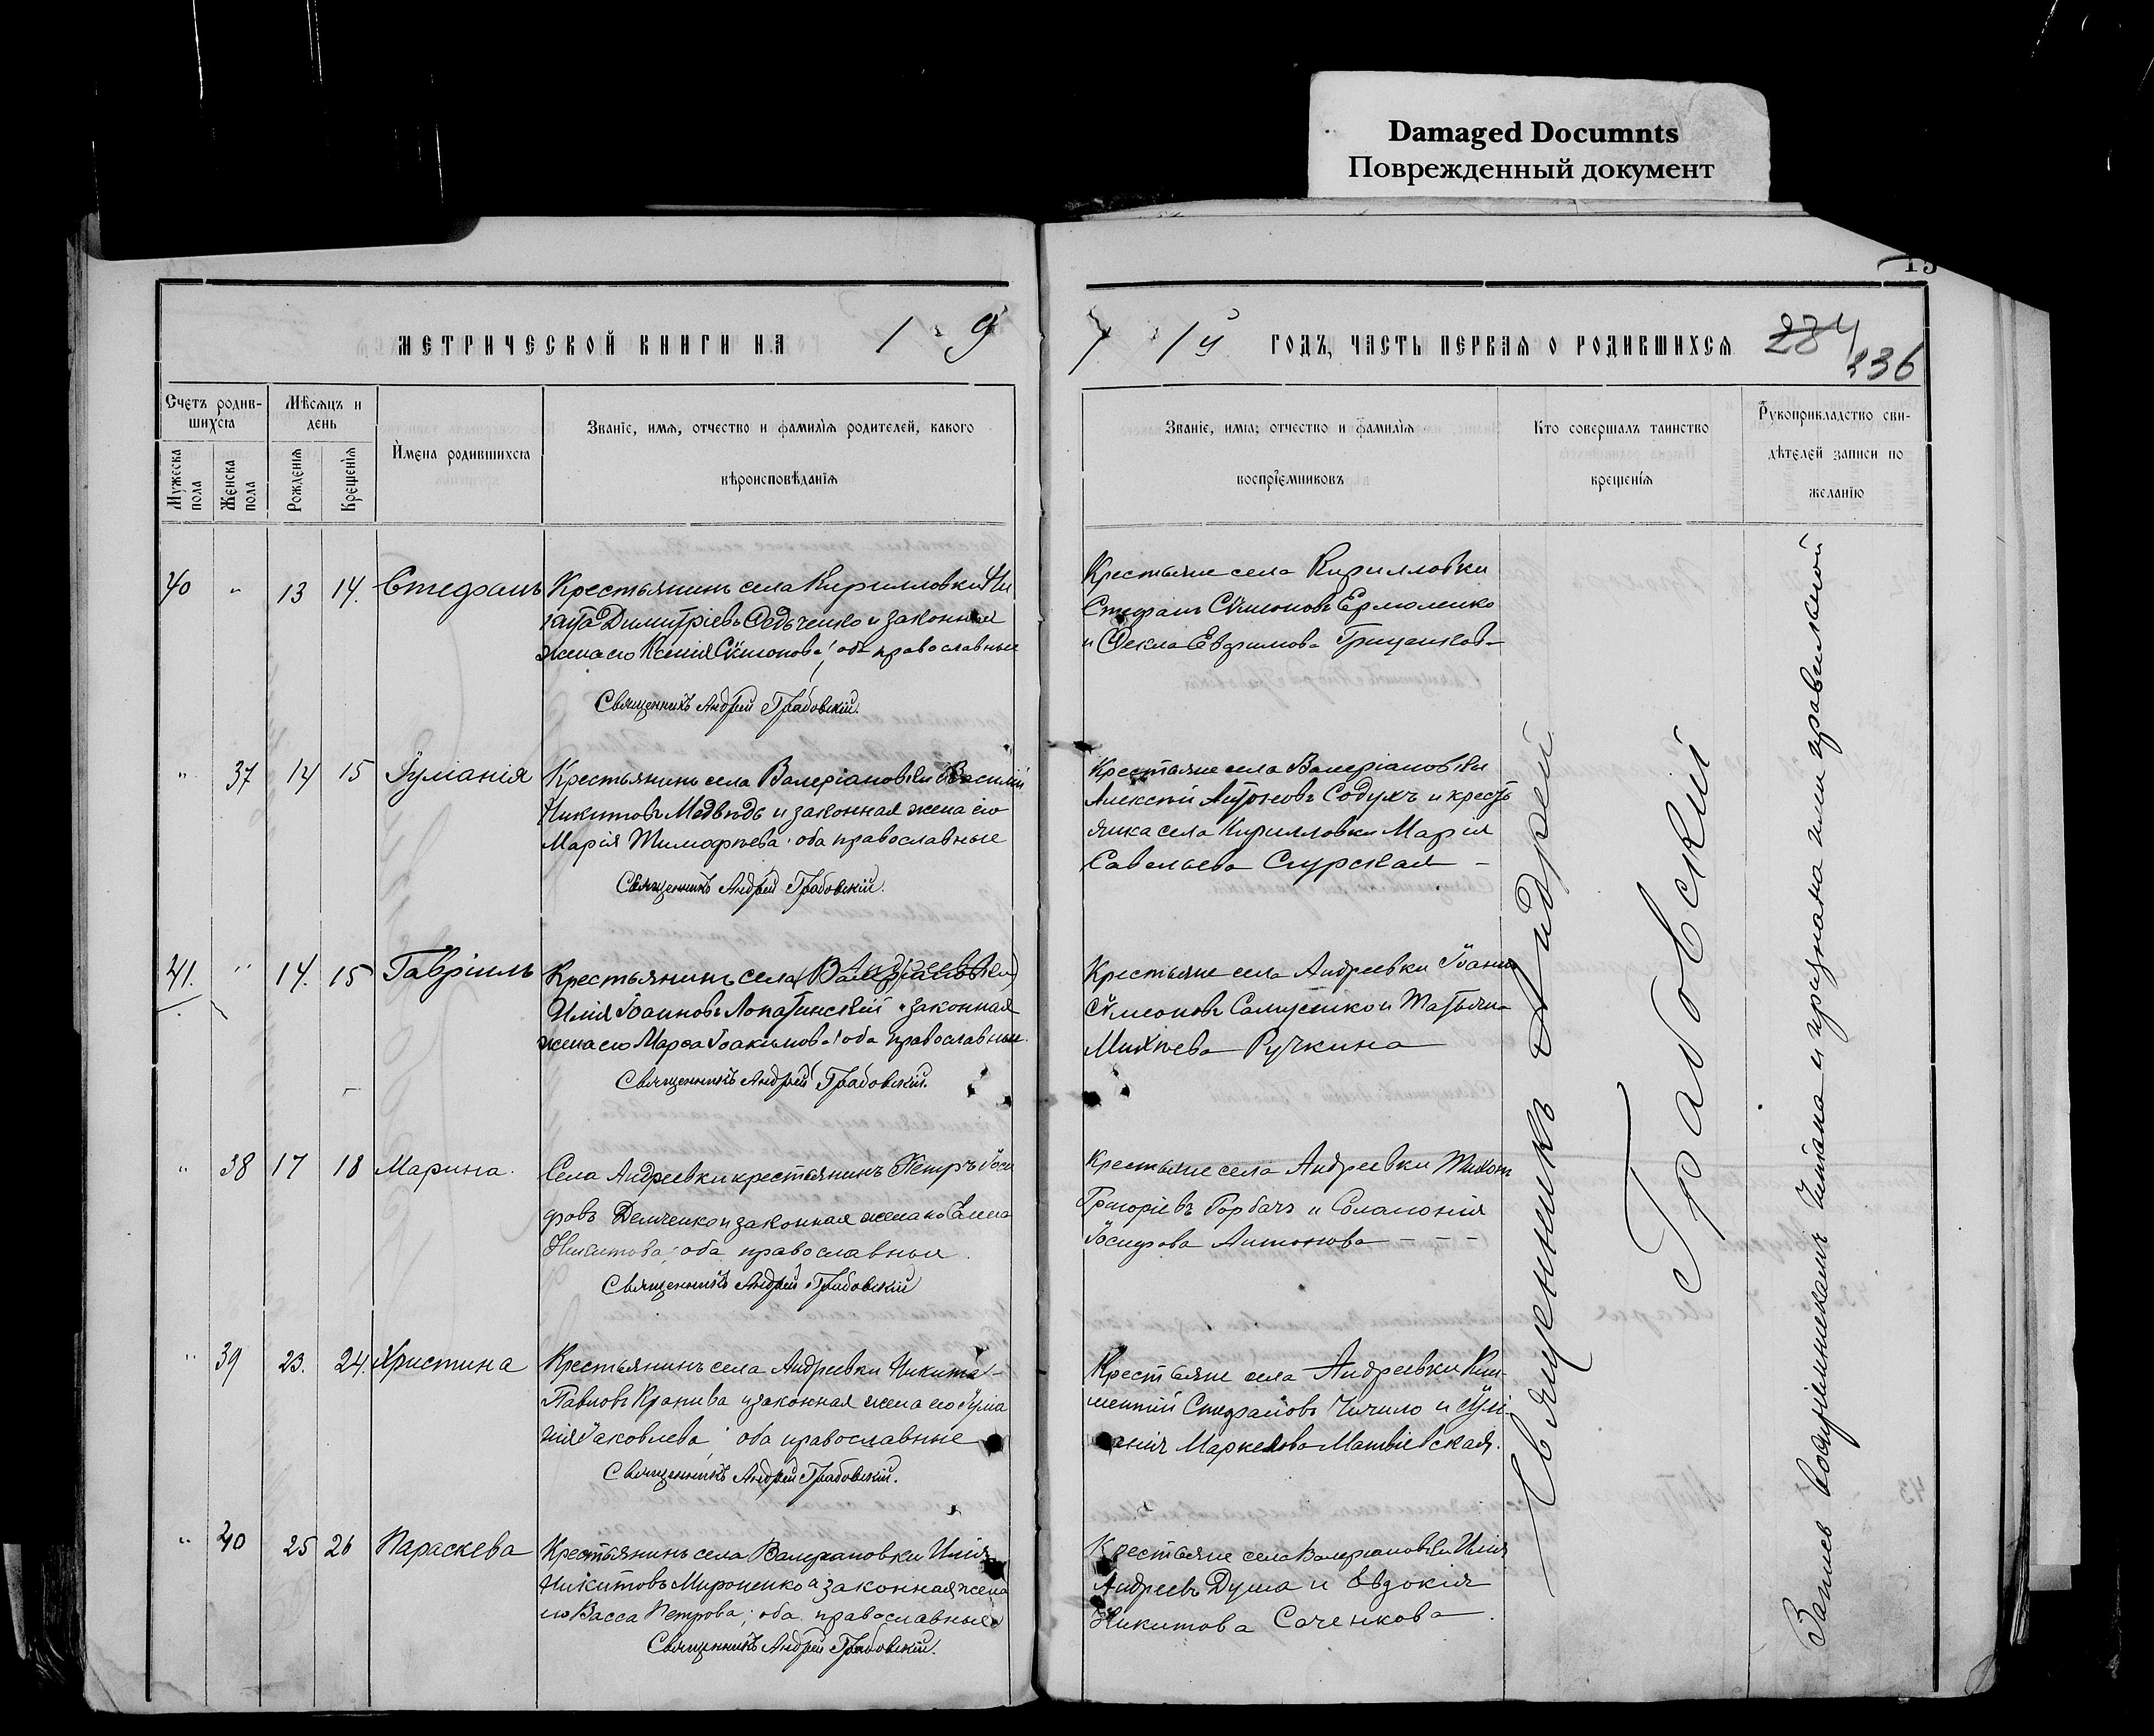 Damaged Documnts
Поврежденный документ
МЕТРИЧЕСКОЙ КНИГИ НА 1 9
1й ГОДЪ, ЧАСТЬ ПЕРВАЯ О РОДИВШИХСЯ 284
236
Счетъ родив-
шихся
Мѣсяцъ и
день
Мужеска пола
Женска пола
Рожденія
Крещенія
Имена родившихся
Званіе, имя, отчество и фамилія родителей, какого
вѣроисповѣданія
Званіе, имя, отчество и фамилія
воспріемниковъ
Кто совершалъ таинство
крещенія
Рукоприкладство сви-
дѣтелей записи по
желанію
40 " 13 14. Стефанъ
Крестьянинъ села Кирилловки
Димитріевъ Федченко и законная
жена его Ксенія Сѵмеонова; оба православные
Священникъ Андрей Грабовскій.
Крестьяне села Кирилловки
Стефанъ Сѵмеоновъ Ермоленко
и Фекла Евфимова
" 37 14 15 Іуліанія
Крестьянинъ села Валеріановки Василій
Никитовъ Медвѣдь и законная жена его
Марія Тимофѣева; оба православные
Священникъ Андрей Грабовскій.
Крестьяне села Валеріановки
Алексій Антоновъ Содухъ и кресть
янка села Кирилловки Марія
Савельева
41. " 14. 15 Гавріилъ
Крестьянинъ села (Валеріановки) Андреевки
Илія Іоанновъ Лопатинскій и законная
жена его Марѳа Іоакимова; оба православные.
Священникъ Андрей Грабовскій.
Крестьяне села Андреевки Іоаннъ
Сѵмеоновъ Самусенко и Татьяна
Михѣева Ручкина
" 38 17 18 Марина.
Села Андреевки крестьянинъ Петръ Іоси
фовъ Демченко и законная жена его Елена
Никитова; оба православные.
Священникъ Андрей Грабовскій
Крестьяне села Андреевки Тихонъ
Григоріевъ Горбачъ и Соломонія
Іосифова Антонова - - -
" 39 23. 24. Христина
Крестьянинъ села Андреевки Никита
Павловъ Кранива и законная жена его Іуліа
нія Іаковлева; оба православные
Священникъ Андрей Грабовскій.
Крестьяне села Андреевки Кли-
ментій Стефановъ Чичило и Іулі-
анія Маркелова Матвіевская.
" 40 25 26 Параскева
Крестьянинъ села Валеріановки Илія
Никитовъ Мироненко и законная жена
его Васса Петрова; оба православные
Священникъ Андрей Грабовскій.
Крестьяне села Валеріановки Илія
Андреевъ Дума и Евдокія
Никитова Саченкова.
Священникъ Андрей
Грабовскій
Запись воспріемникамъ читана и признана ими правильной